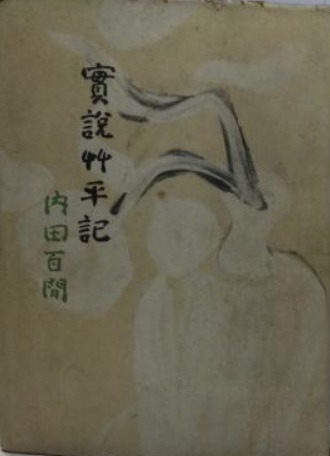 實說艸平記
内田百閒